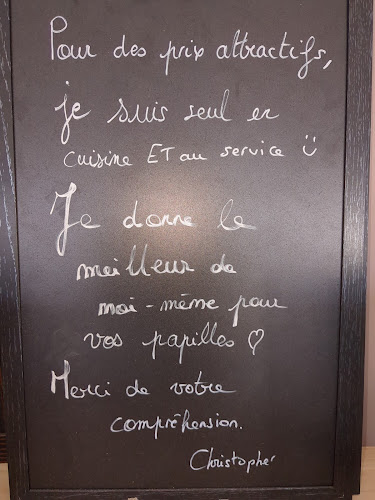 Pour des prix attractifs,
je suis seul en
cuisine ET au service
Je donne le
meilleur de
moi-même pour
vos papilles ♡
Merci de votre
compréhension.
Christopher